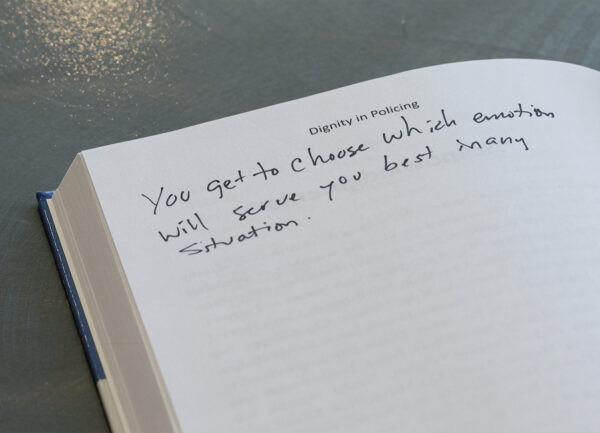 Dignity in Policing
You get to choose which emotion
will serve you best in any
situation.